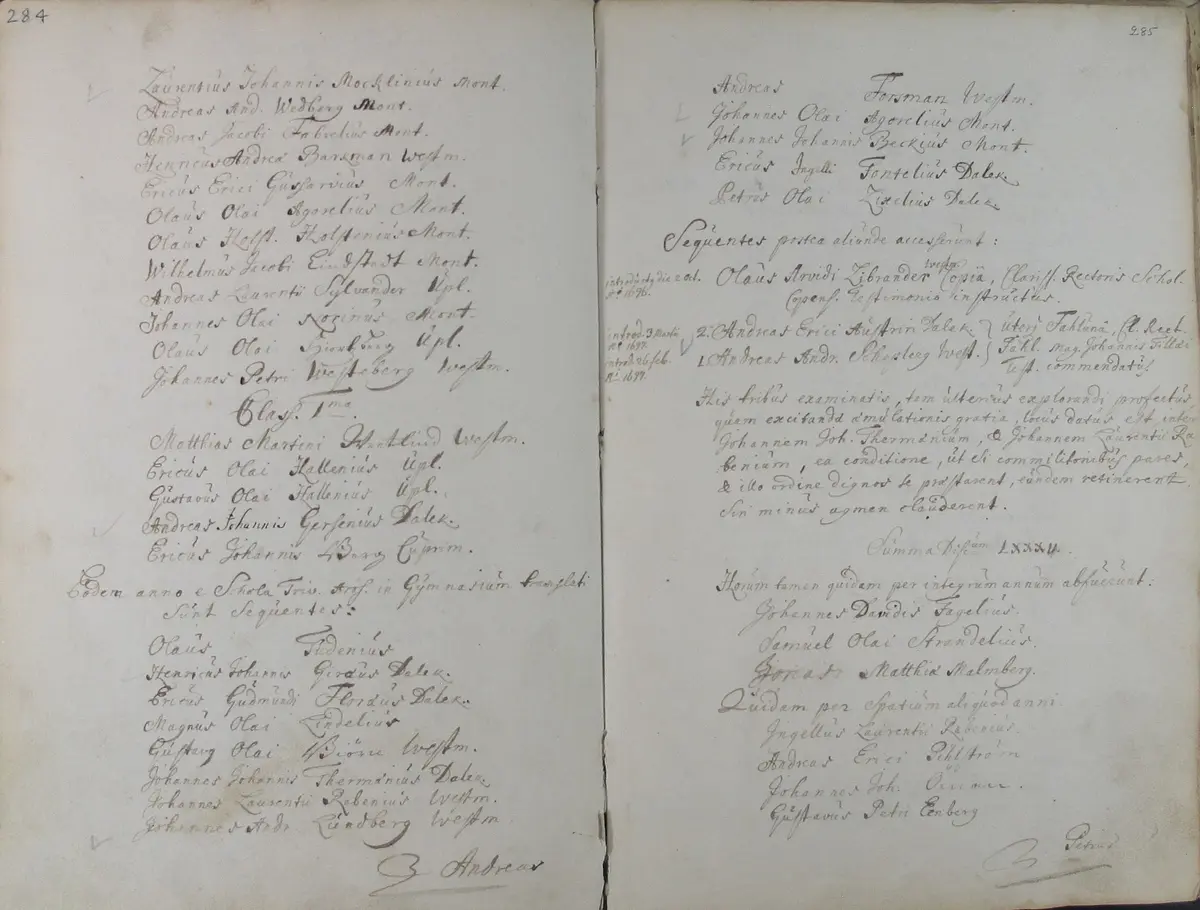 284
Laurentius Johannis Mocklinius Mont.
Andreas And. Wedberg Mont.
Andreas Jacobi Fabrelius Mont.
Henricus Andreæ Barkman Westm.
Ericus Erici Gussarvius Mont.
Olaus Olai Agorelius Mont.
Olaus Holst. Holstenius Mont.
Wilhelmus Jacobi Lindstedt Mont.
Andreas Laurentii Sylvander Upl.
Johannes Olai Norinus Mont.
Olaus Olai Upl.
Johannes Petri Westeberg Westm.
Class. I.ma
Matthias Martini Westm.
Ericus Olai Hallenius Upl.
Gustavus Olai Hallenius Upl.
Andreas Johannis Gersenius Dalek.
Ericus Johannis Berg Cuprim.
Eodem anno e Schola Triv. Aros. in Gymnasium translati
Sunt Sequentes:
Olaus Tudenius
Henricus Johannis Geræus Dalek.
Ericus Gudmundi Floræus Dalek.
Magnus Olai Lindelius
Gustavg Olai Biörn Westm.
Johannes Johannis Thermænius Dalek
Johannes Laurentii Rabenius Westm.
Johannes Andr. Lundberg Westm
Andreas
285
Andreas Forsman Westm.
Johannes Olai Agorelius Mont.
Johannes Johannis Beckius Mont.
Ericus Ingelli Fontelius Dalek.
Petrus Olai Zixelius Dalek.
Sequentes postea aliunde accesserunt:
Olaus Arvidi Zibrander Westm. Copia, Clariss. Rectoris Schol.
Copens. Testimonia instructus.
introd. 3 Martii 2. Andreas Erici Austrin Dalek. Uterq Fahluna, Cl. Rect.
introd. 26 feb. 1. Andreas Andr. Schesberg West. Fahl. Mag. Johannis Filläi
1697. Test. commendatus
His tribus examinatis, tam ulterius explorandi profectus
quam excitandæ æmulationis gratia, locus datus est inter
Johannem Joh. Thermænium, & Johannem Laurentii Ra-
benium, ea conditione, ut si commilitonibus pares,
& illo ordine dignos se præstarent, eundem retinerent,
Sin minus agmen clauderent.
Summa LXXXV.
Horum tamen quidam per integrum annum abfuerunt:
Johannes Davidis Fagelius.
Samuel Olai Strandelius.
Jonas Matthiæ Malmberg.
Quidam per Spatium aliquod anni.
Ingellus Laurentii Rabenius.
Andreas Erici Pihlström
Johannes Joh.
Gustavus Petri Eenberg
Petrus